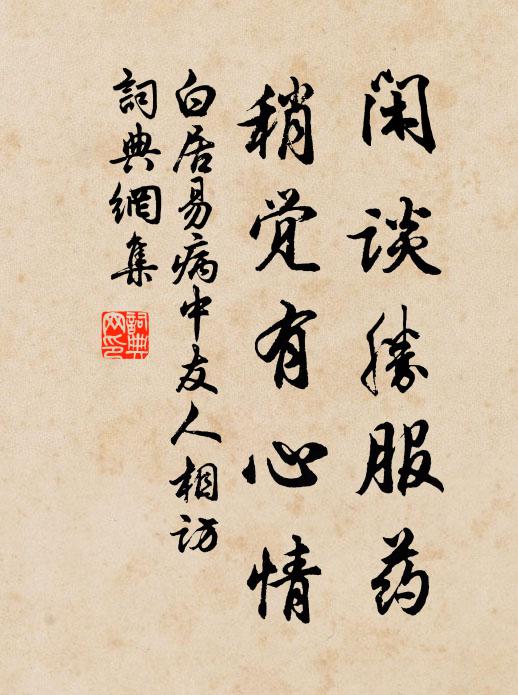 闲谈胜服药
稍觉有心情
白居易病中友人相访
詞典網集
詞典网印